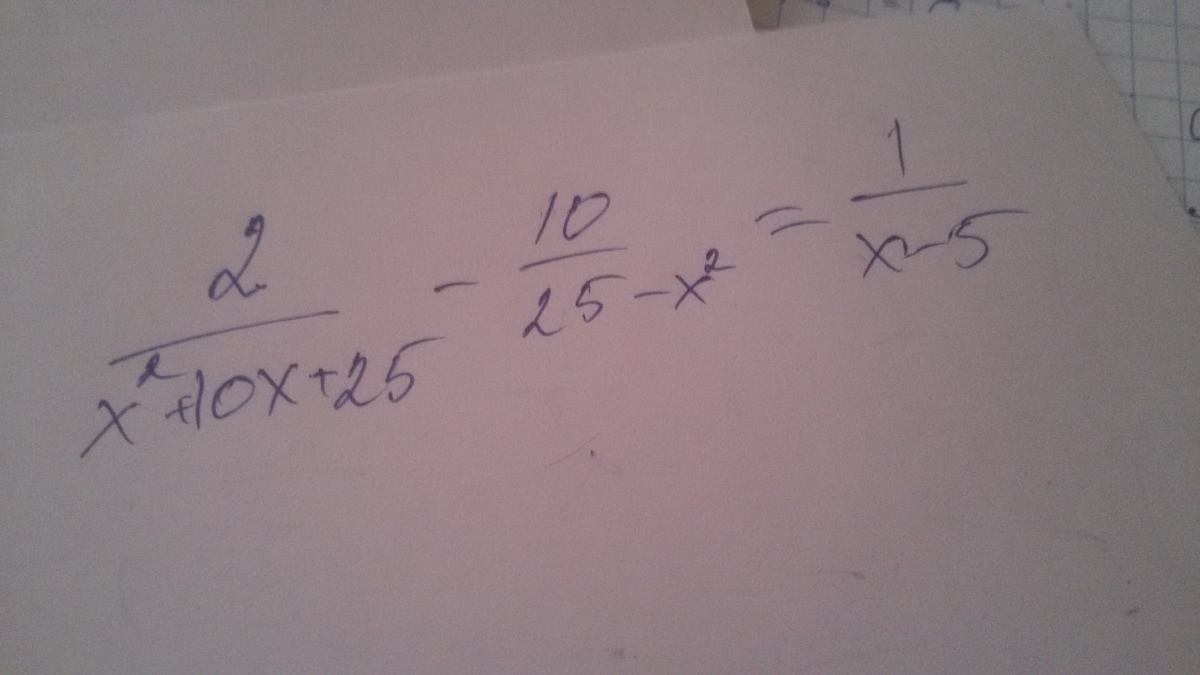 2/(x²+10x+25) - 10/(25-x²) = 1/(x-5)